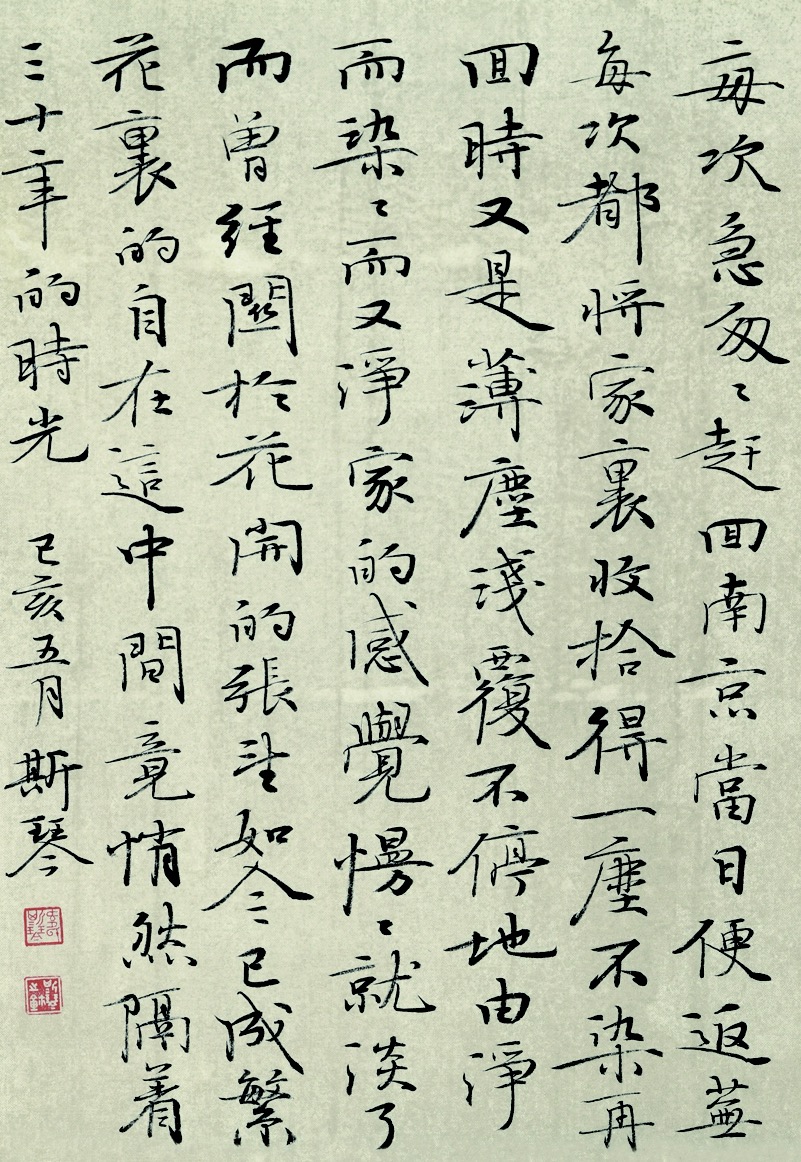 每次急匆〻趕回南京當日便返蕪
每次都將家裏收拾得一塵不染再
回時又是薄塵淺覆不停地由淨
而染〻而又淨家的感覺慢〻就淡了
而曾經關於花開的張望如今已成繁
花裏的自在這中間竟悄然隔着
三十年的時光 己亥五月斯琴